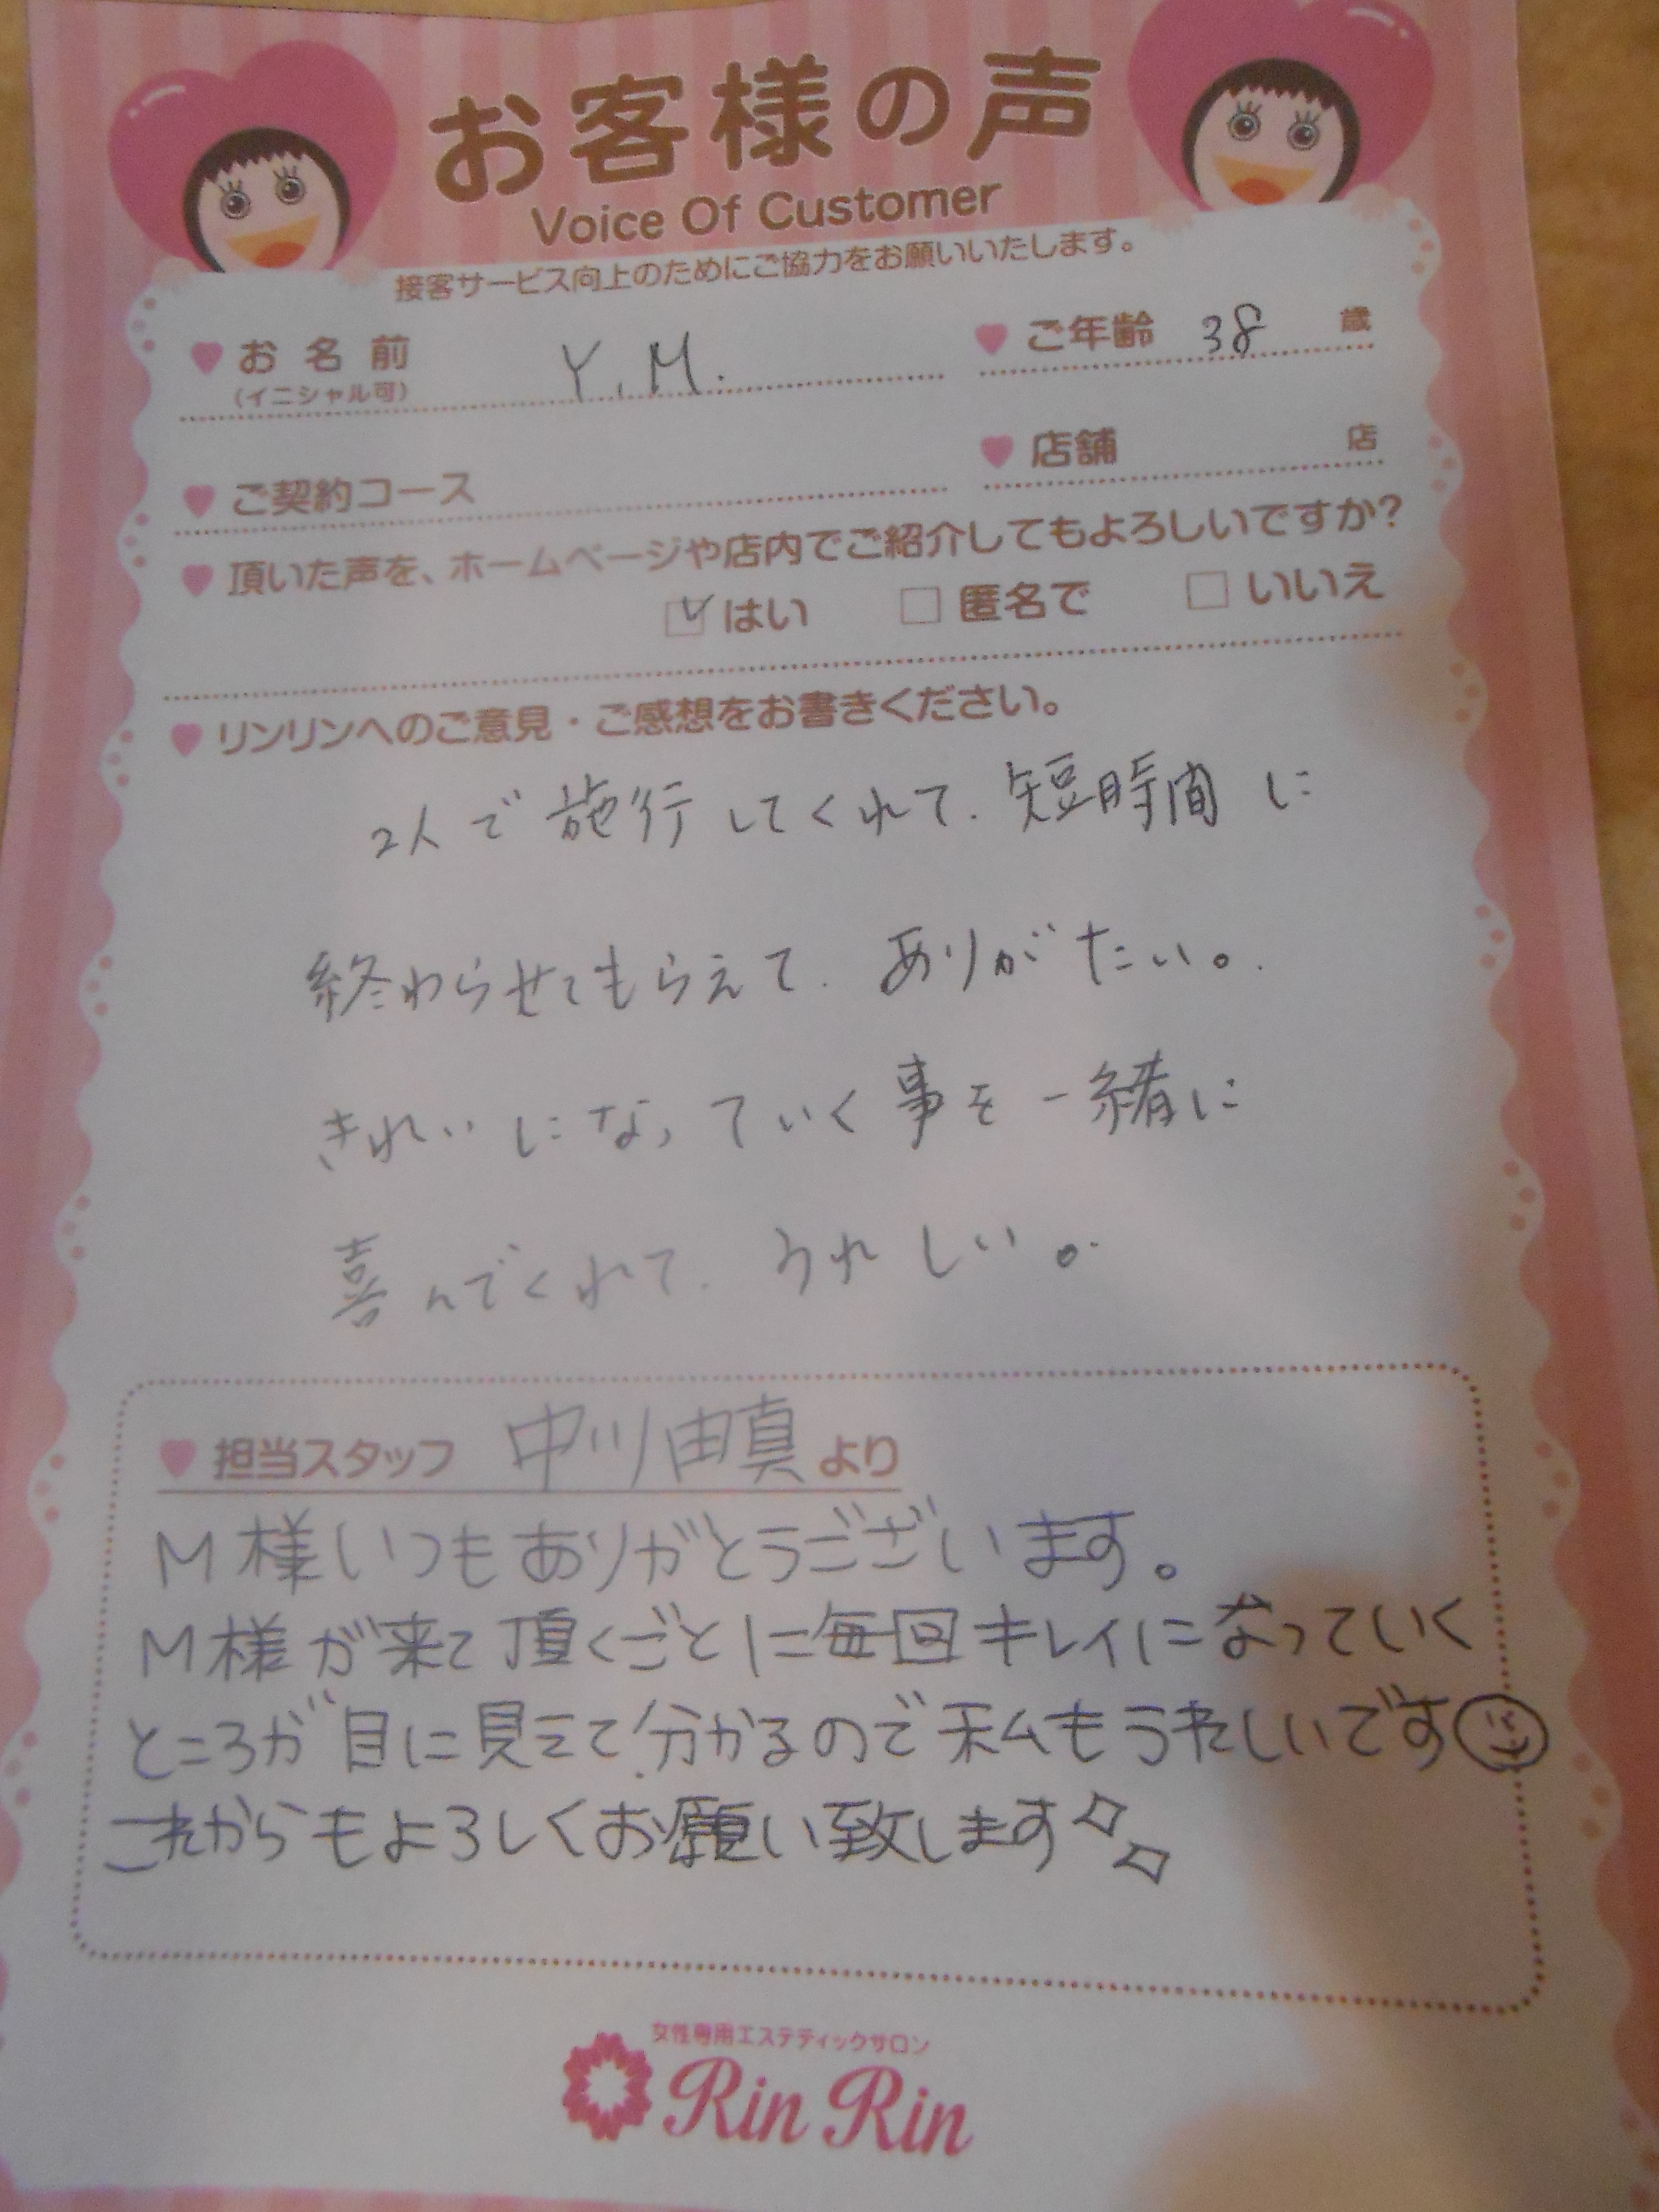 お客様の声
Voice Of Customer
接客サービス向上のためにご協力をお願いいたします。
お名前 Y.M. ご年齢 38 歳
(イニシャル可)
ご契約コース 店舗 店
頂いた声を、ホームページや店内でご紹介してもよろしいですか?
はい 匿名で いいえ
リンリンへのご意見・ご感想をお書きください。
2人で施行してくれて、短時間に
終わらせてもらえて、ありがたい。
きれいになっていく事を一緒に
喜んでくれて、うれしい。
担当スタッフ 中川由真より
M様いつもありがとうございます。
M様が来て頂くごとに毎回キレイになっていく
ところが目に見えて分かるので私もうれしいです
これからもよろしくお願い致します
女性専用エステティックサロン
Rin Rin